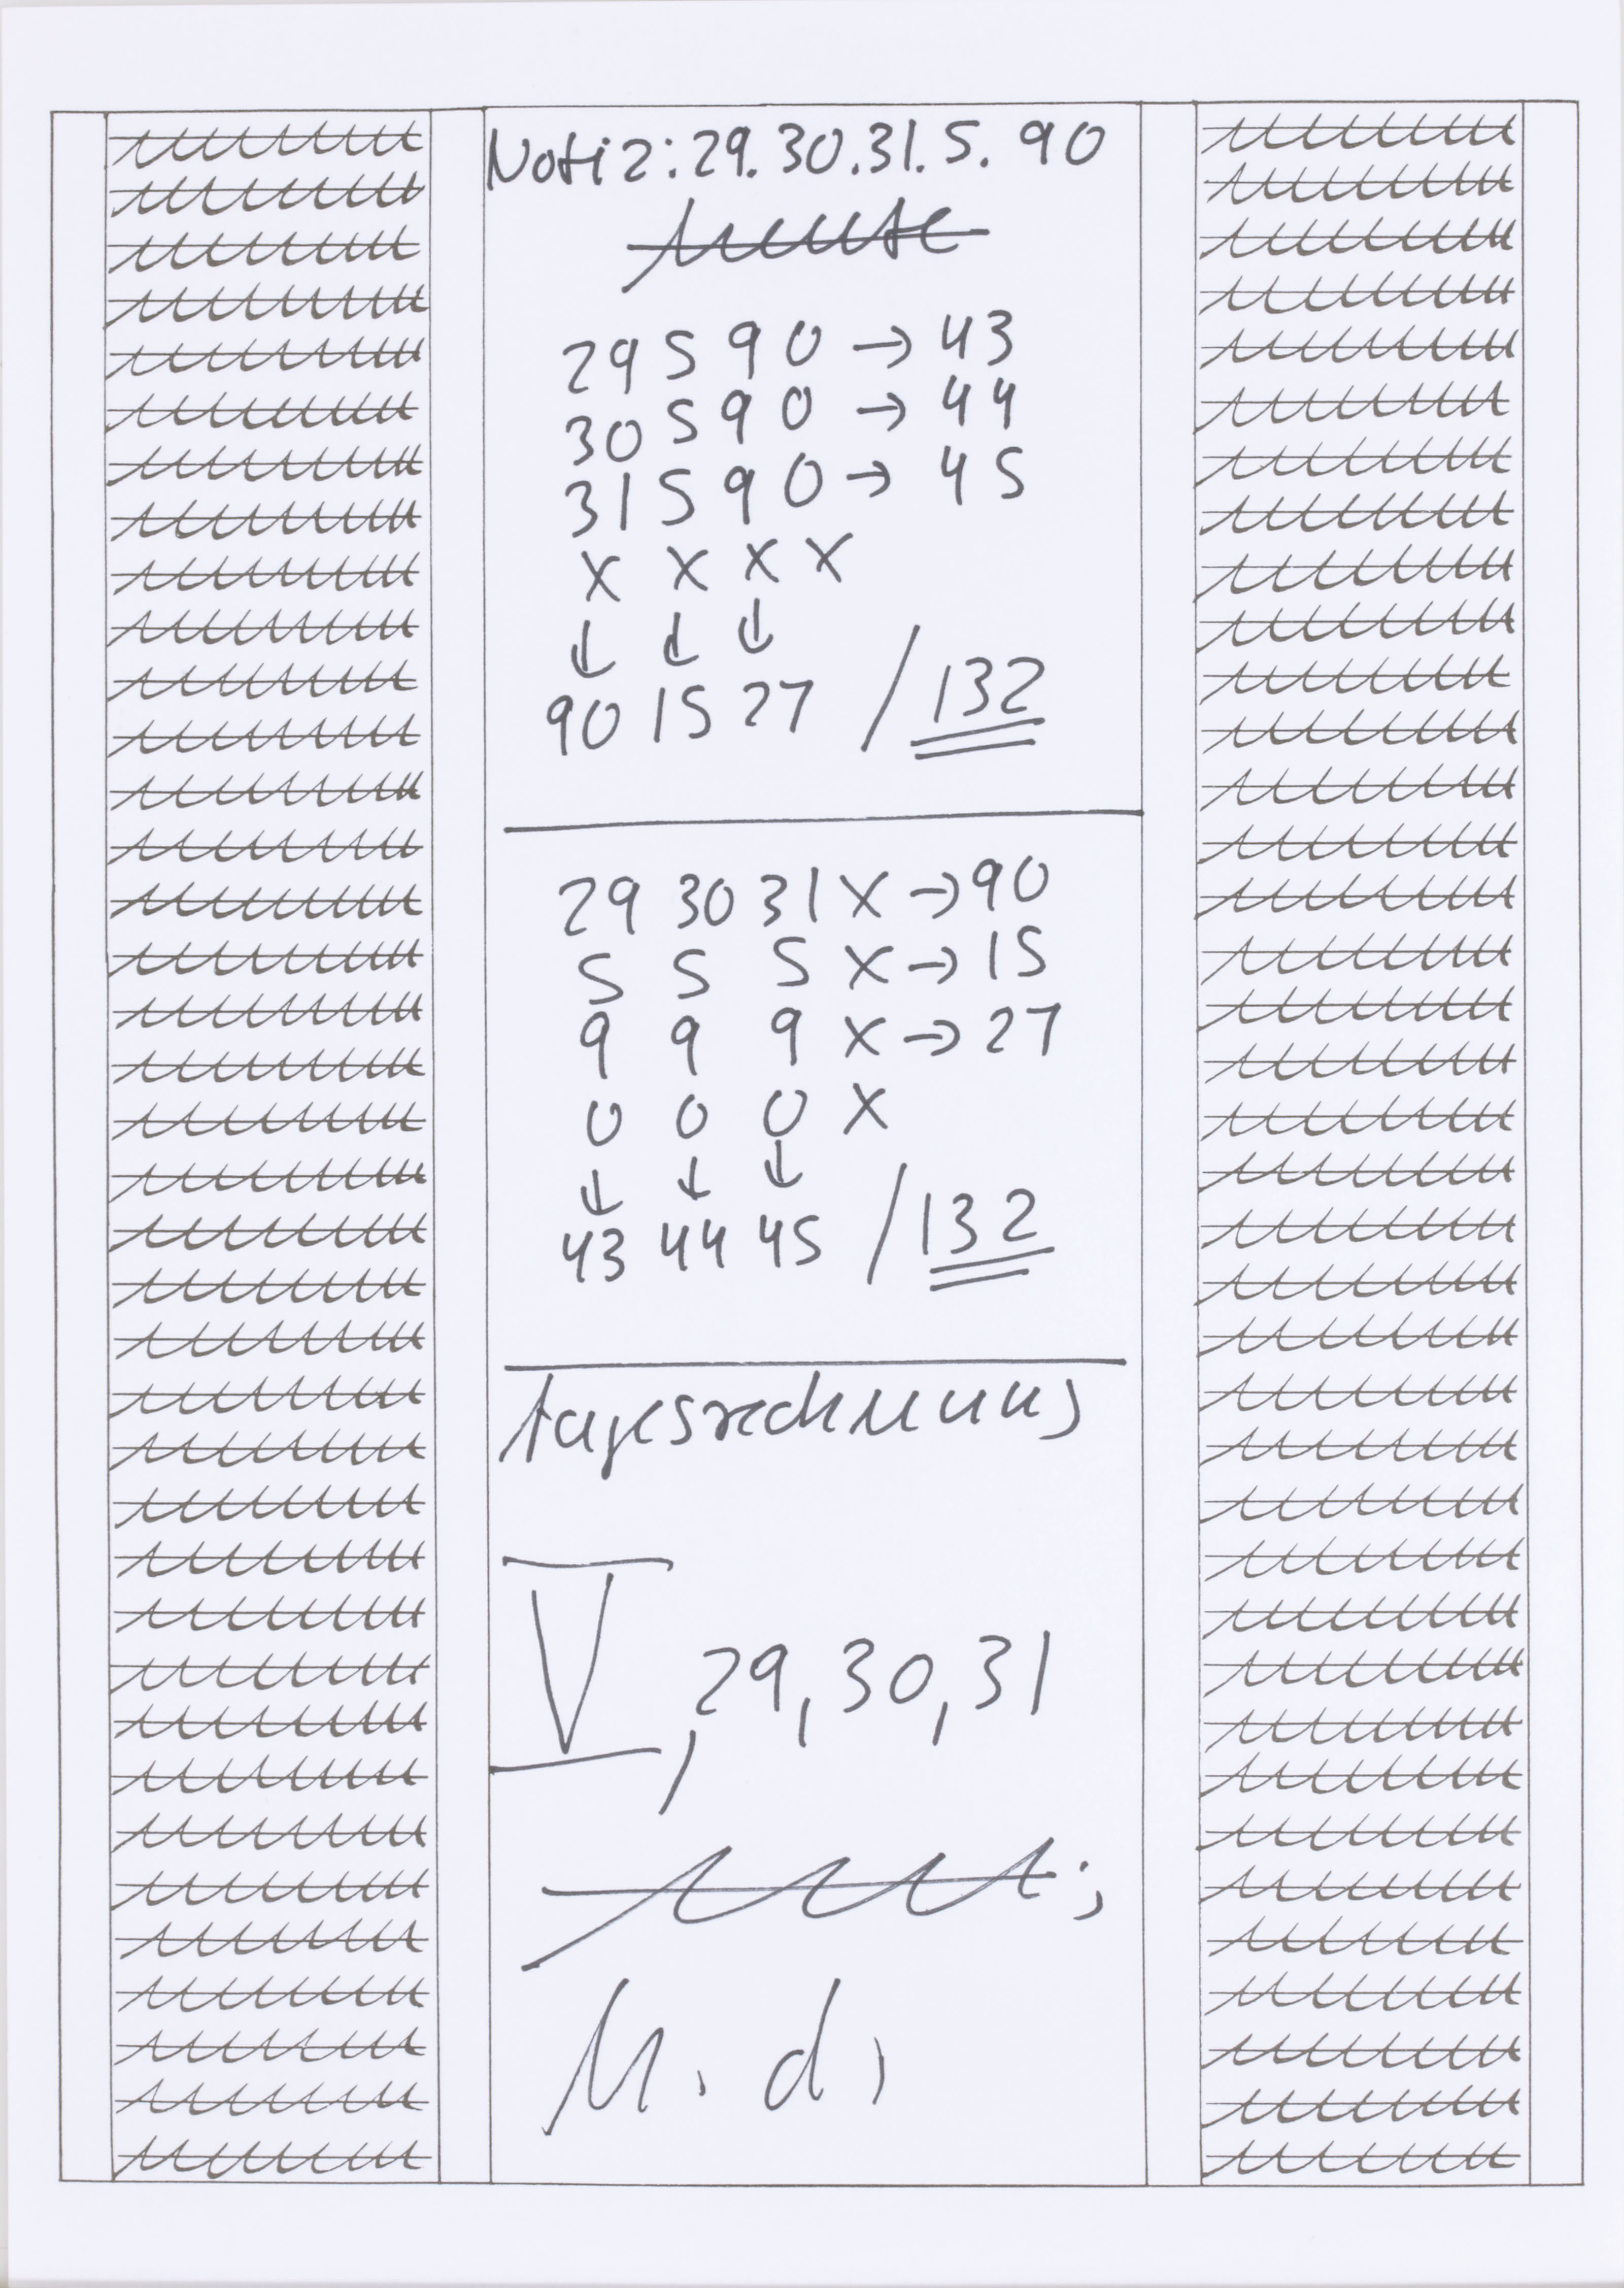 Notiz: 29. 30. 31. 5. 90
heute
29 5 9 0 → 43
30 5 9 0 → 44
31 5 9 0 → 45
x x x x
↓ ↓ ↓
90 15 27 / 132
29 30 31 x → 90
5 5 5 x → 15
9 9 9 x → 27
0 0 0 x
↓ ↓ ↓
43 44 45 / 132
tagesrechnung
V, 29, 30, 31
M. d,